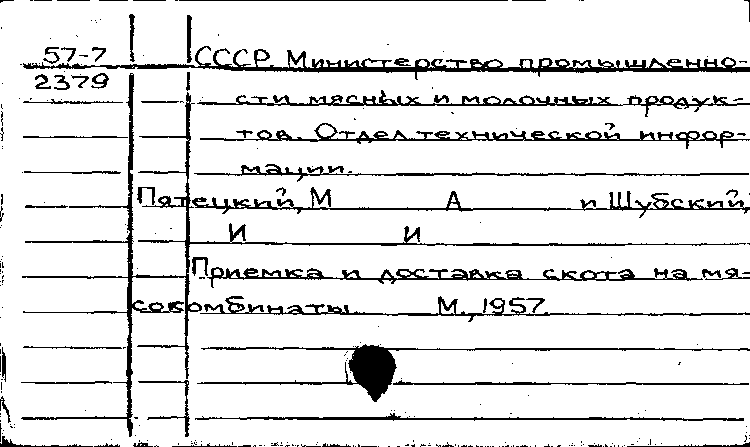 57-7 СССР. Министерство промышленно-
2379
сти мясных и молочных продук-
тов. Отдел технической инфор-
мации.
Пятецкий, М А и Шубский,
И И
Приемка и доставка скота на мя-
сокомбинаты. М., 1957.